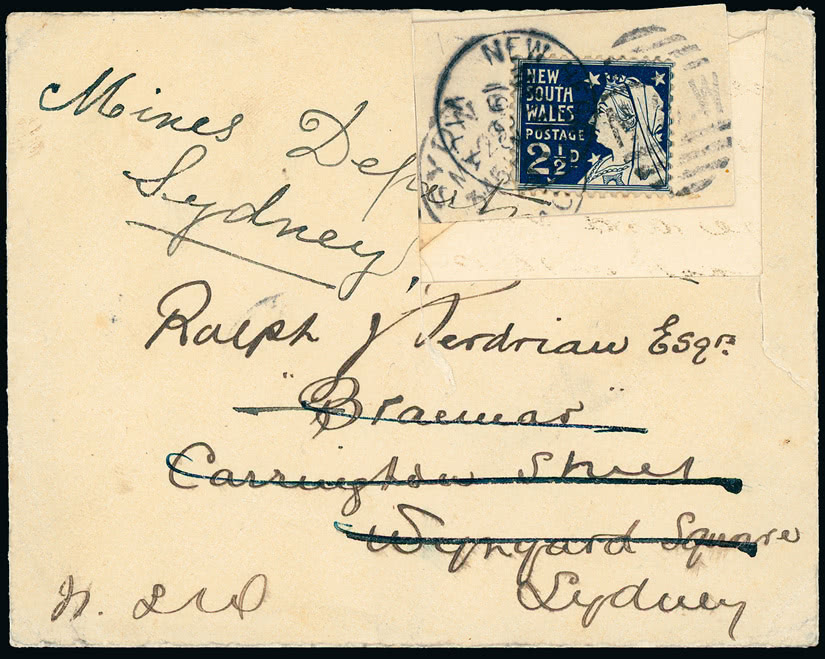 Mines Depart
Sydney
NEW
NEW
SOUTH
WALES
POSTAGE
2½D
Ralph Verdriau Esqre
"Braemar"
Carrington Street
Wynyard Square
Sydney